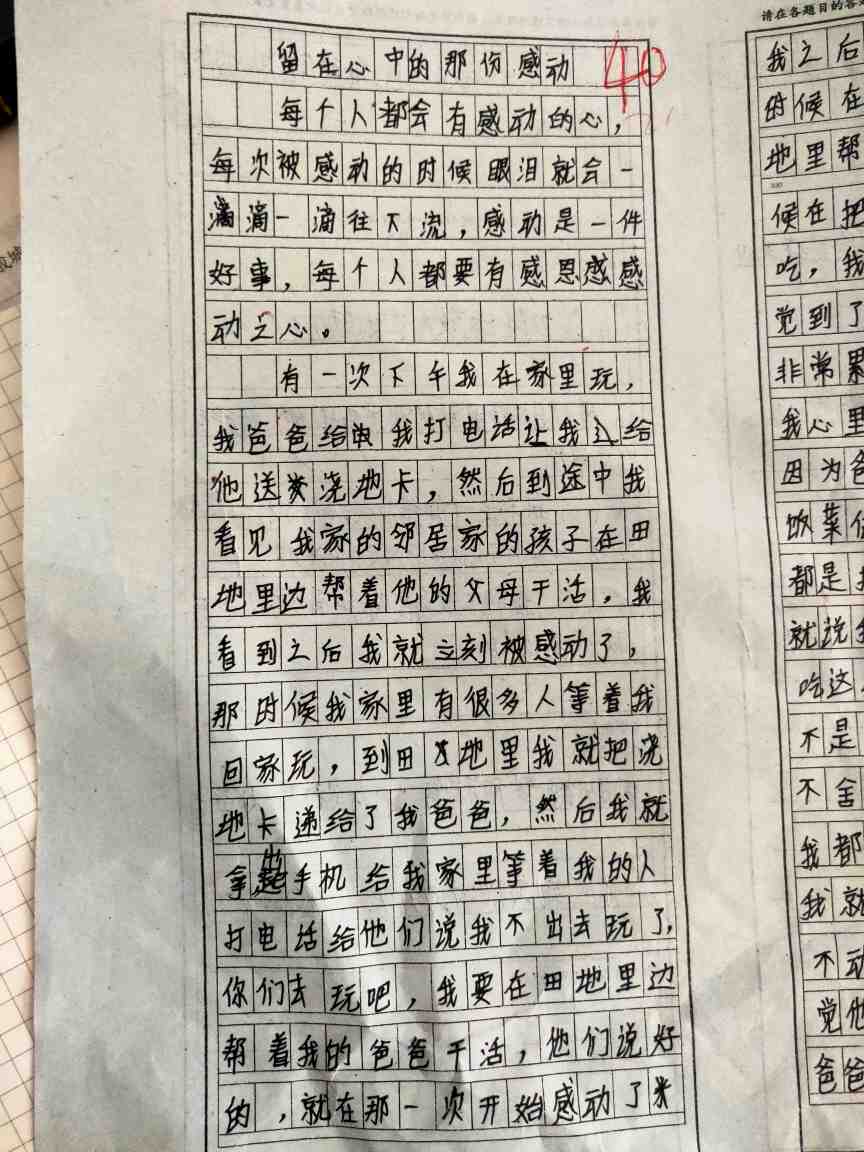 请在各题目的答
留在心中的那份感动
40
每个人都会有感动的心，
每次被感动的时候眼泪就会一
滴滴一滴往下流，感动是一件
好事，每个人都要有感恩感感
动之心。
有一次下午我在家里玩，
我爸爸给我打电话让我给
他送浇地卡，然后到途中我
看见我家的邻居家的孩子在田
地里边帮着他的父母干活，我
看到之后我就立刻被感动了，
那时候我家里有很多人等着我
回家玩，到田地里我就把浇
地卡递给了我爸爸，然后我就
拿出手机给我家里等着我的人
打电话给他们说我不出去玩了，
你们去玩吧，我要在田地里边
帮着我的爸爸干活，他们说好
的，就在那一次开始感动了
我之后
时候在
地里帮
候在把
吃，我
觉到了
非常累
我心里
因为爸
饭菜
都是
就说我
吃这
不是
不舍
我都
我就
不动
觉他
爸爸